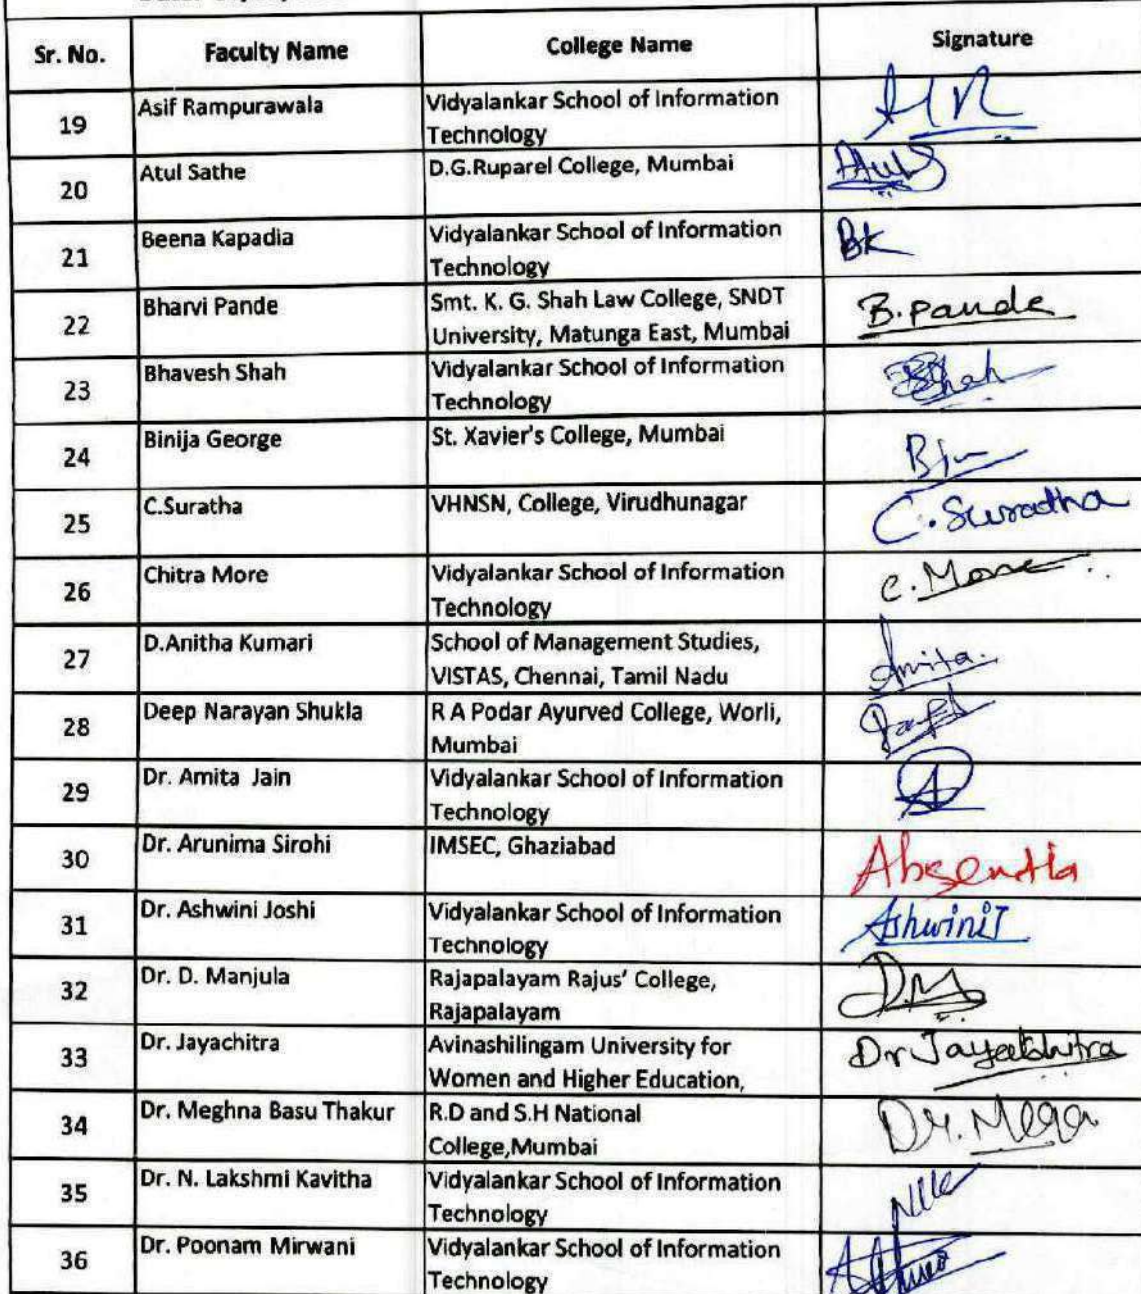 Sr. No. Faculty Name College Name Signature
19 Asif Rampurawala Vidyalankar School of Information
Technology
20 Atul Sathe D.G.Ruparel College, Mumbai
21 Beena Kapadia Vidyalankar School of Information BK
Technology
22 Bharvi Pande Smt. K. G. Shah Law College, SNDT B.Pande
University, Matunga East, Mumbai
23 Bhavesh Shah Vidyalankar School of Information
Technology
24 Binija George St. Xavier's College, Mumbai
25 C.Suratha VHNSN, College, Virudhunagar C.Suratha
26 Chitra More Vidyalankar School of Information C.More
Technology
27 D.Anitha Kumari School of Management Studies, Anita.
VISTAS, Chennai, Tamil Nadu
28 Deep Narayan Shukla R A Podar Ayurved College, Worli,
Mumbai
29 Dr. Amita Jain Vidyalankar School of Information
Technology
30 Dr. Arunima Sirohi IMSEC, Ghaziabad Absentia
31 Dr. Ashwini Joshi Vidyalankar School of Information AshwiniJ
Technology
32 Dr. D. Manjula Rajapalayam Rajus' College, D.M
Rajapalayam
33 Dr. Jayachitra Avinashilingam University for Dr Jayachitra
Women and Higher Education,
34 Dr. Meghna Basu Thakur R.D and S.H National
College,Mumbai
35 Dr. N. Lakshmi Kavitha Vidyalankar School of Information
Technology
36 Dr. Poonam Mirwani Vidyalankar School of Information
Technology